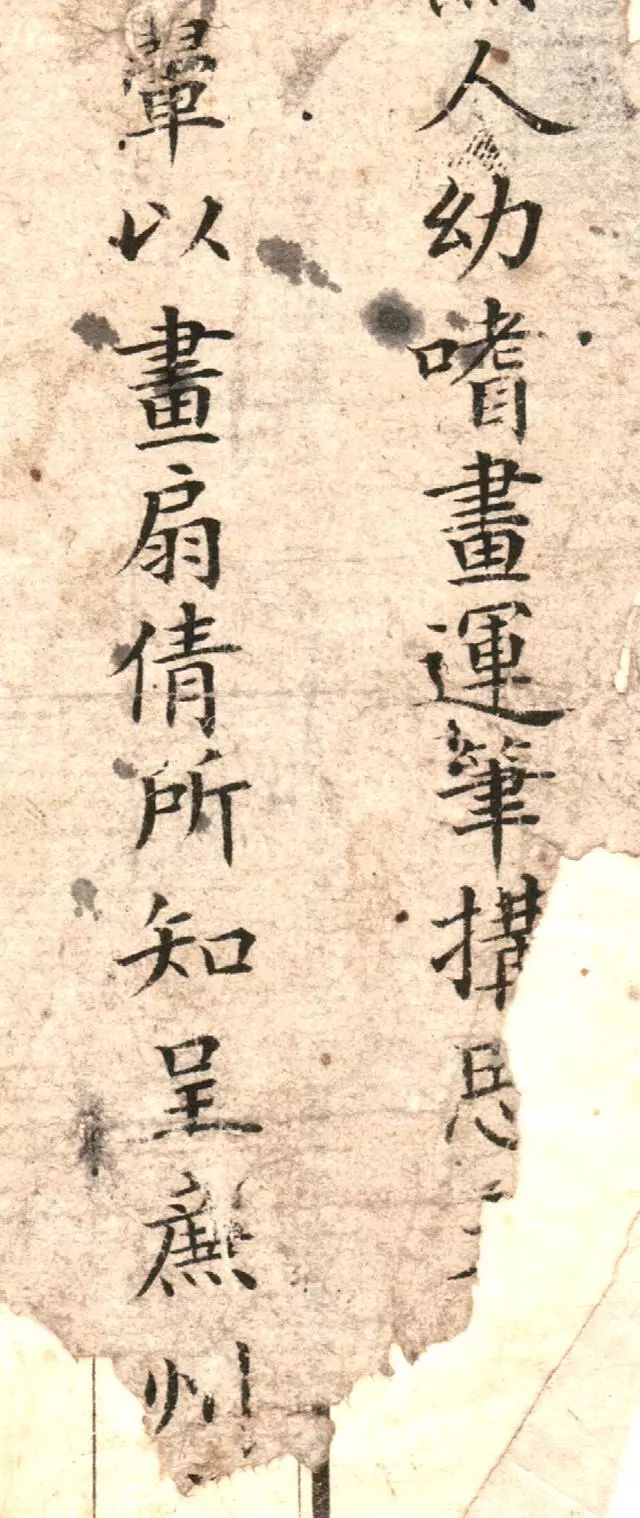 人幼嗜畫運筆搆思
翬以畫扇倩所知呈廉州